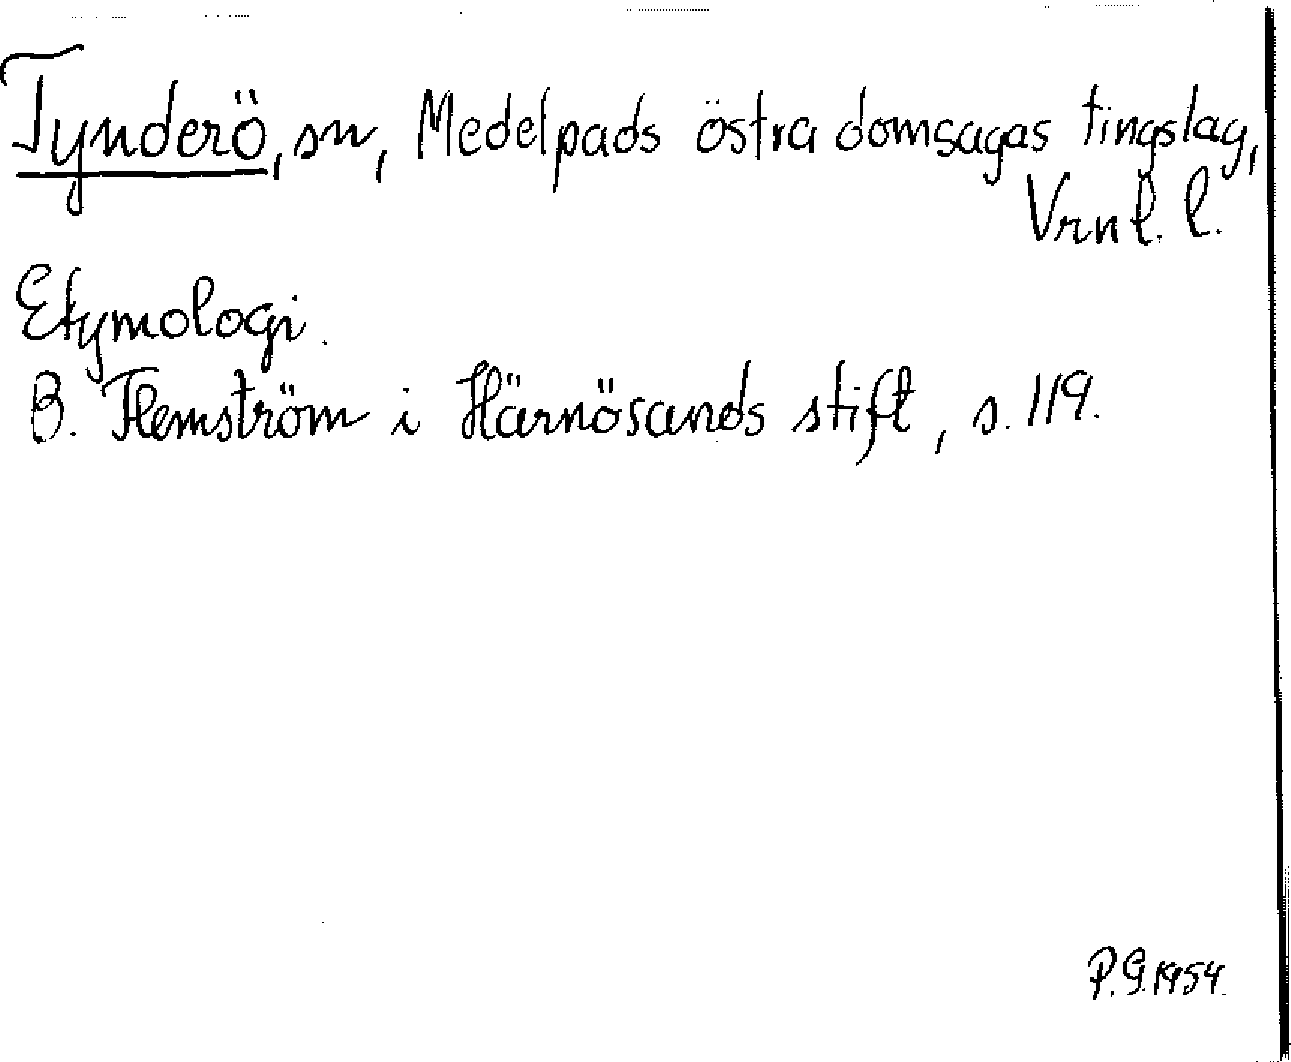 Tynderö, sn, Medelpads östra domsagas tingslag,
Vrnl. l.
Etymologi.
B. Flemström i Härnösands stift, s. 119.
P. G. 1954.